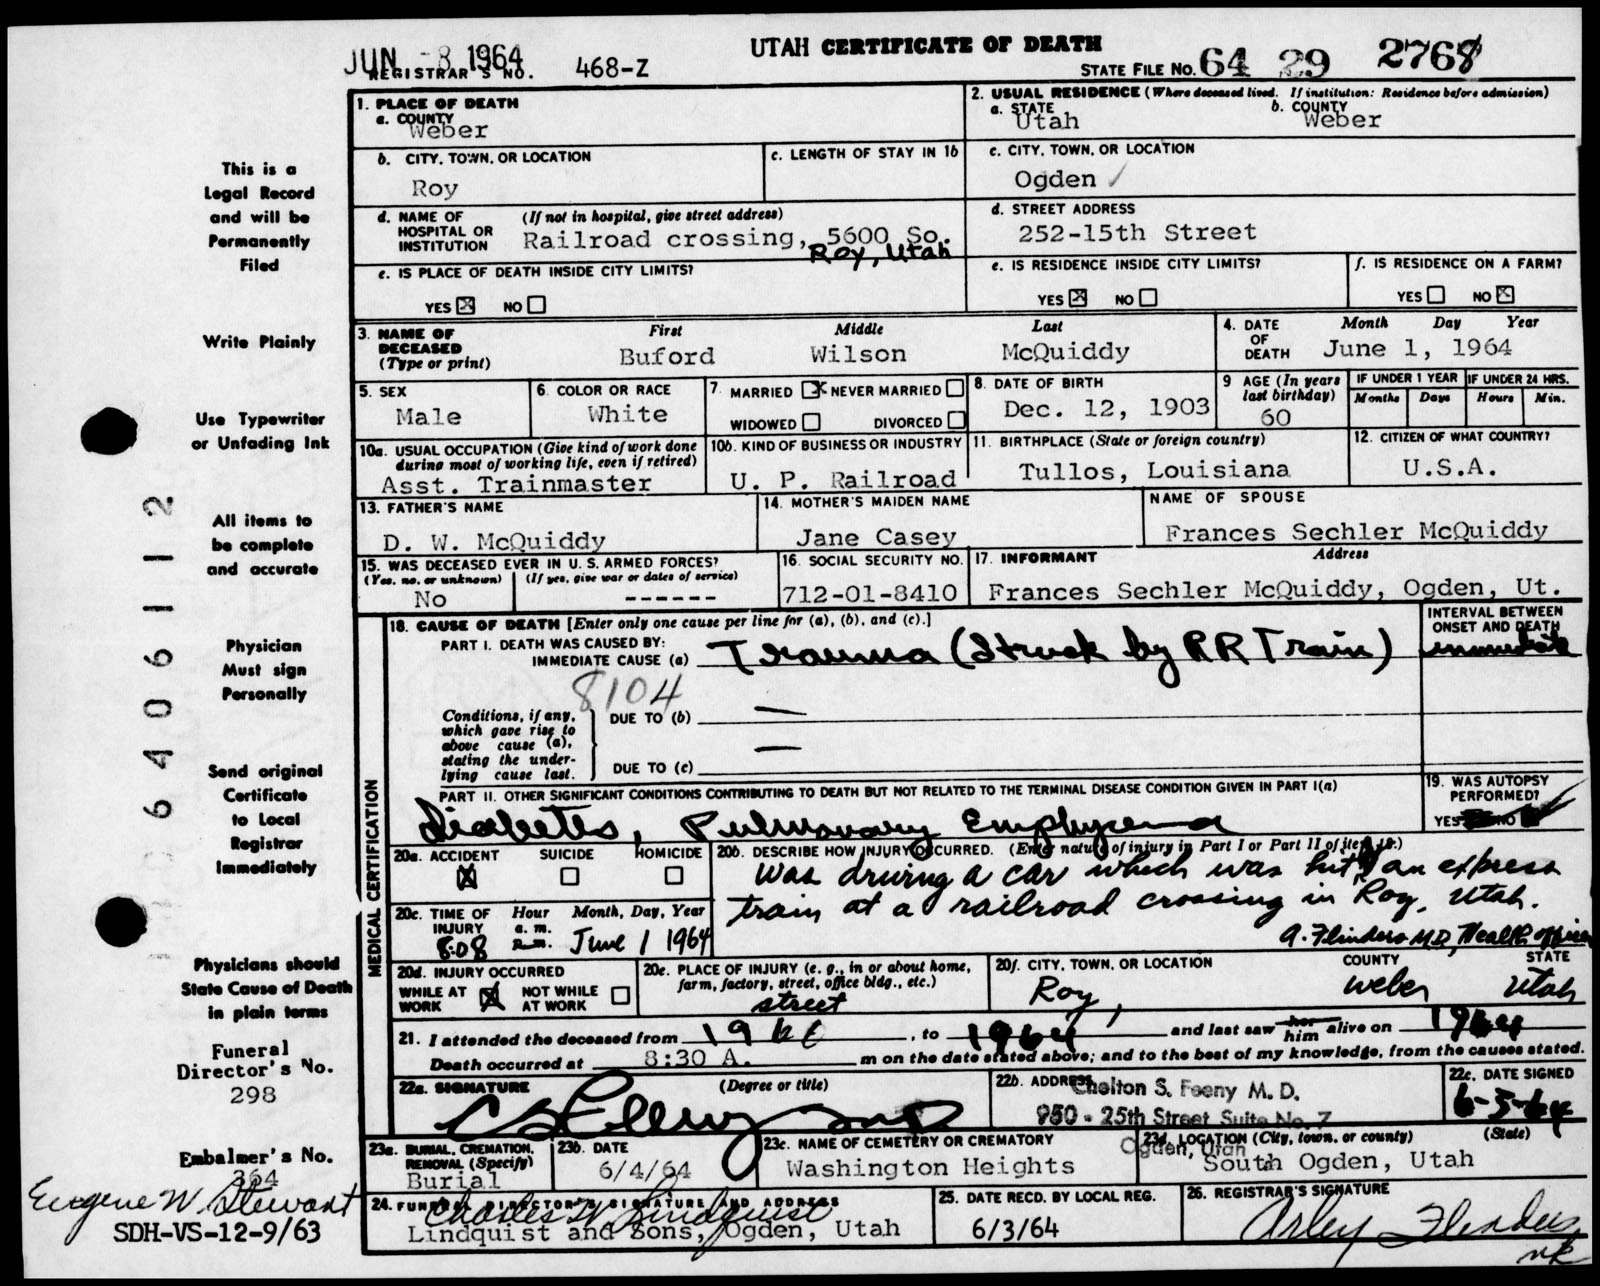 JUN -8 1964
UTAH CERTIFICATE OF DEATH
REGISTRAR'S NO. 468-Z
STATE FILE NO. 64 29 2768
1. PLACE OF DEATH
a. COUNTY
Weber
2. USUAL RESIDENCE (Where deceased lived. If institution: Residence before admission)
a. STATE
Utah
b. COUNTY
Weber
b. CITY, TOWN, OR LOCATION
Roy
c. LENGTH OF STAY IN 1b
c. CITY, TOWN, OR LOCATION
Ogden
d. NAME OF HOSPITAL OR INSTITUTION
(If not in hospital, give street address)
Railroad crossing, 5600 So.
Roy, Utah
d. STREET ADDRESS
252-15th Street
e. IS PLACE OF DEATH INSIDE CITY LIMITS?
YES ☒ NO ☐
e. IS RESIDENCE INSIDE CITY LIMITS?
YES ☒ NO ☐
f. IS RESIDENCE ON A FARM?
YES ☐ NO ☒
3. NAME OF DECEASED (Type or print)
First Middle Last
Buford Wilson McQuiddy
4. DATE OF DEATH
Month Day Year
June 1, 1964
5. SEX
Male
6. COLOR OR RACE
White
7. MARRIED ☒ NEVER MARRIED ☐
WIDOWED ☐ DIVORCED ☐
8. DATE OF BIRTH
Dec. 12, 1903
9 AGE (In years last birthday)
60
IF UNDER 1 YEAR
Months Days
IF UNDER 24 HRS.
Hours Min.
10a. USUAL OCCUPATION (Give kind of work done during most of working life, even if retired)
Asst. Trainmaster
10b. KIND OF BUSINESS OR INDUSTRY
U. P. Railroad
11. BIRTHPLACE (State or foreign country)
Tullos, Louisiana
12. CITIZEN OF WHAT COUNTRY?
U.S.A.
13. FATHER'S NAME
D. W. McQuiddy
14. MOTHER'S MAIDEN NAME
Jane Casey
NAME OF SPOUSE
Frances Sechler McQuiddy
15. WAS DECEASED EVER IN U. S. ARMED FORCES?
(Yes, no, or unknown) (If yes, give war or dates of service)
No ------
16. SOCIAL SECURITY NO.
712-01-8410
17. INFORMANT Address
Frances Sechler McQuiddy, Ogden, Ut.
18. CAUSE OF DEATH [Enter only one cause per line for (a), (b), and (c).]
PART I. DEATH WAS CAUSED BY:
IMMEDIATE CAUSE (a) Trauma (Struck by RR Train)
INTERVAL BETWEEN ONSET AND DEATH
immediate
8104
Conditions, if any, which gave rise to above cause (a), stating the underlying cause last.
DUE TO (b) —
DUE TO (c) —
PART II. OTHER SIGNIFICANT CONDITIONS CONTRIBUTING TO DEATH BUT NOT RELATED TO THE TERMINAL DISEASE CONDITION GIVEN IN PART I(a)
Diabetes, Pulmonary Emphysema
19. WAS AUTOPSY PERFORMED?
YES NO
MEDICAL CERTIFICATION
20a. ACCIDENT SUICIDE HOMICIDE
☒ ☐ ☐
20b. DESCRIBE HOW INJURY OCCURRED. (Enter nature of injury in Part I or Part II of item 18.)
Was driving a car which was hit by an express
train at a railroad crossing in Roy, Utah.
A. Flinders M.D, Health officer
20c. TIME OF INJURY
Hour Month, Day, Year
8:08 a. m. p. m. June 1 1964
20d. INJURY OCCURRED
WHILE AT WORK ☒ NOT WHILE AT WORK ☐
20e. PLACE OF INJURY (e. g., in or about home, farm, factory, street, office bldg., etc.)
street
20f. CITY, TOWN, OR LOCATION COUNTY STATE
Roy, Weber Utah
21. I attended the deceased from , to 1964 and last saw her him alive on 1964
Death occurred at 8:30 A. m on the date stated above; and to the best of my knowledge, from the causes stated.
22a. SIGNATURE (Degree or title)
22b. ADDRESS
Chelton S. Feeny M. D.
950 - 25th Street Suite No. 7
Ogden, Utah
22c. DATE SIGNED
6-3-64
23a. BURIAL, CREMATION, REMOVAL (Specify)
Burial
23b. DATE
6/4/64
23c. NAME OF CEMETERY OR CREMATORY
Washington Heights
23d. LOCATION (City, town, or county) (State)
South Ogden, Utah
24. FUNERAL DIRECTOR'S SIGNATURE AND ADDRESS
Charles W Lindquist
Lindquist and Sons, Ogden, Utah
25. DATE RECD. BY LOCAL REG.
6/3/64
26. REGISTRAR'S SIGNATURE
Arley Flinders
nk
This is a
Legal Record
and will be
Permanently
Filed
Write Plainly
Use Typewriter
or Unfading Ink
All items to
be complete
and accurate
Physician
Must sign
Personally
Send original
Certificate
to Local
Registrar
Immediately
Physicians should
State Cause of Death
in plain terms
Funeral
Director's No.
298
Embalmer's No.
364
Eugene W. Stewart
SDH-VS-12-9/63
64061112